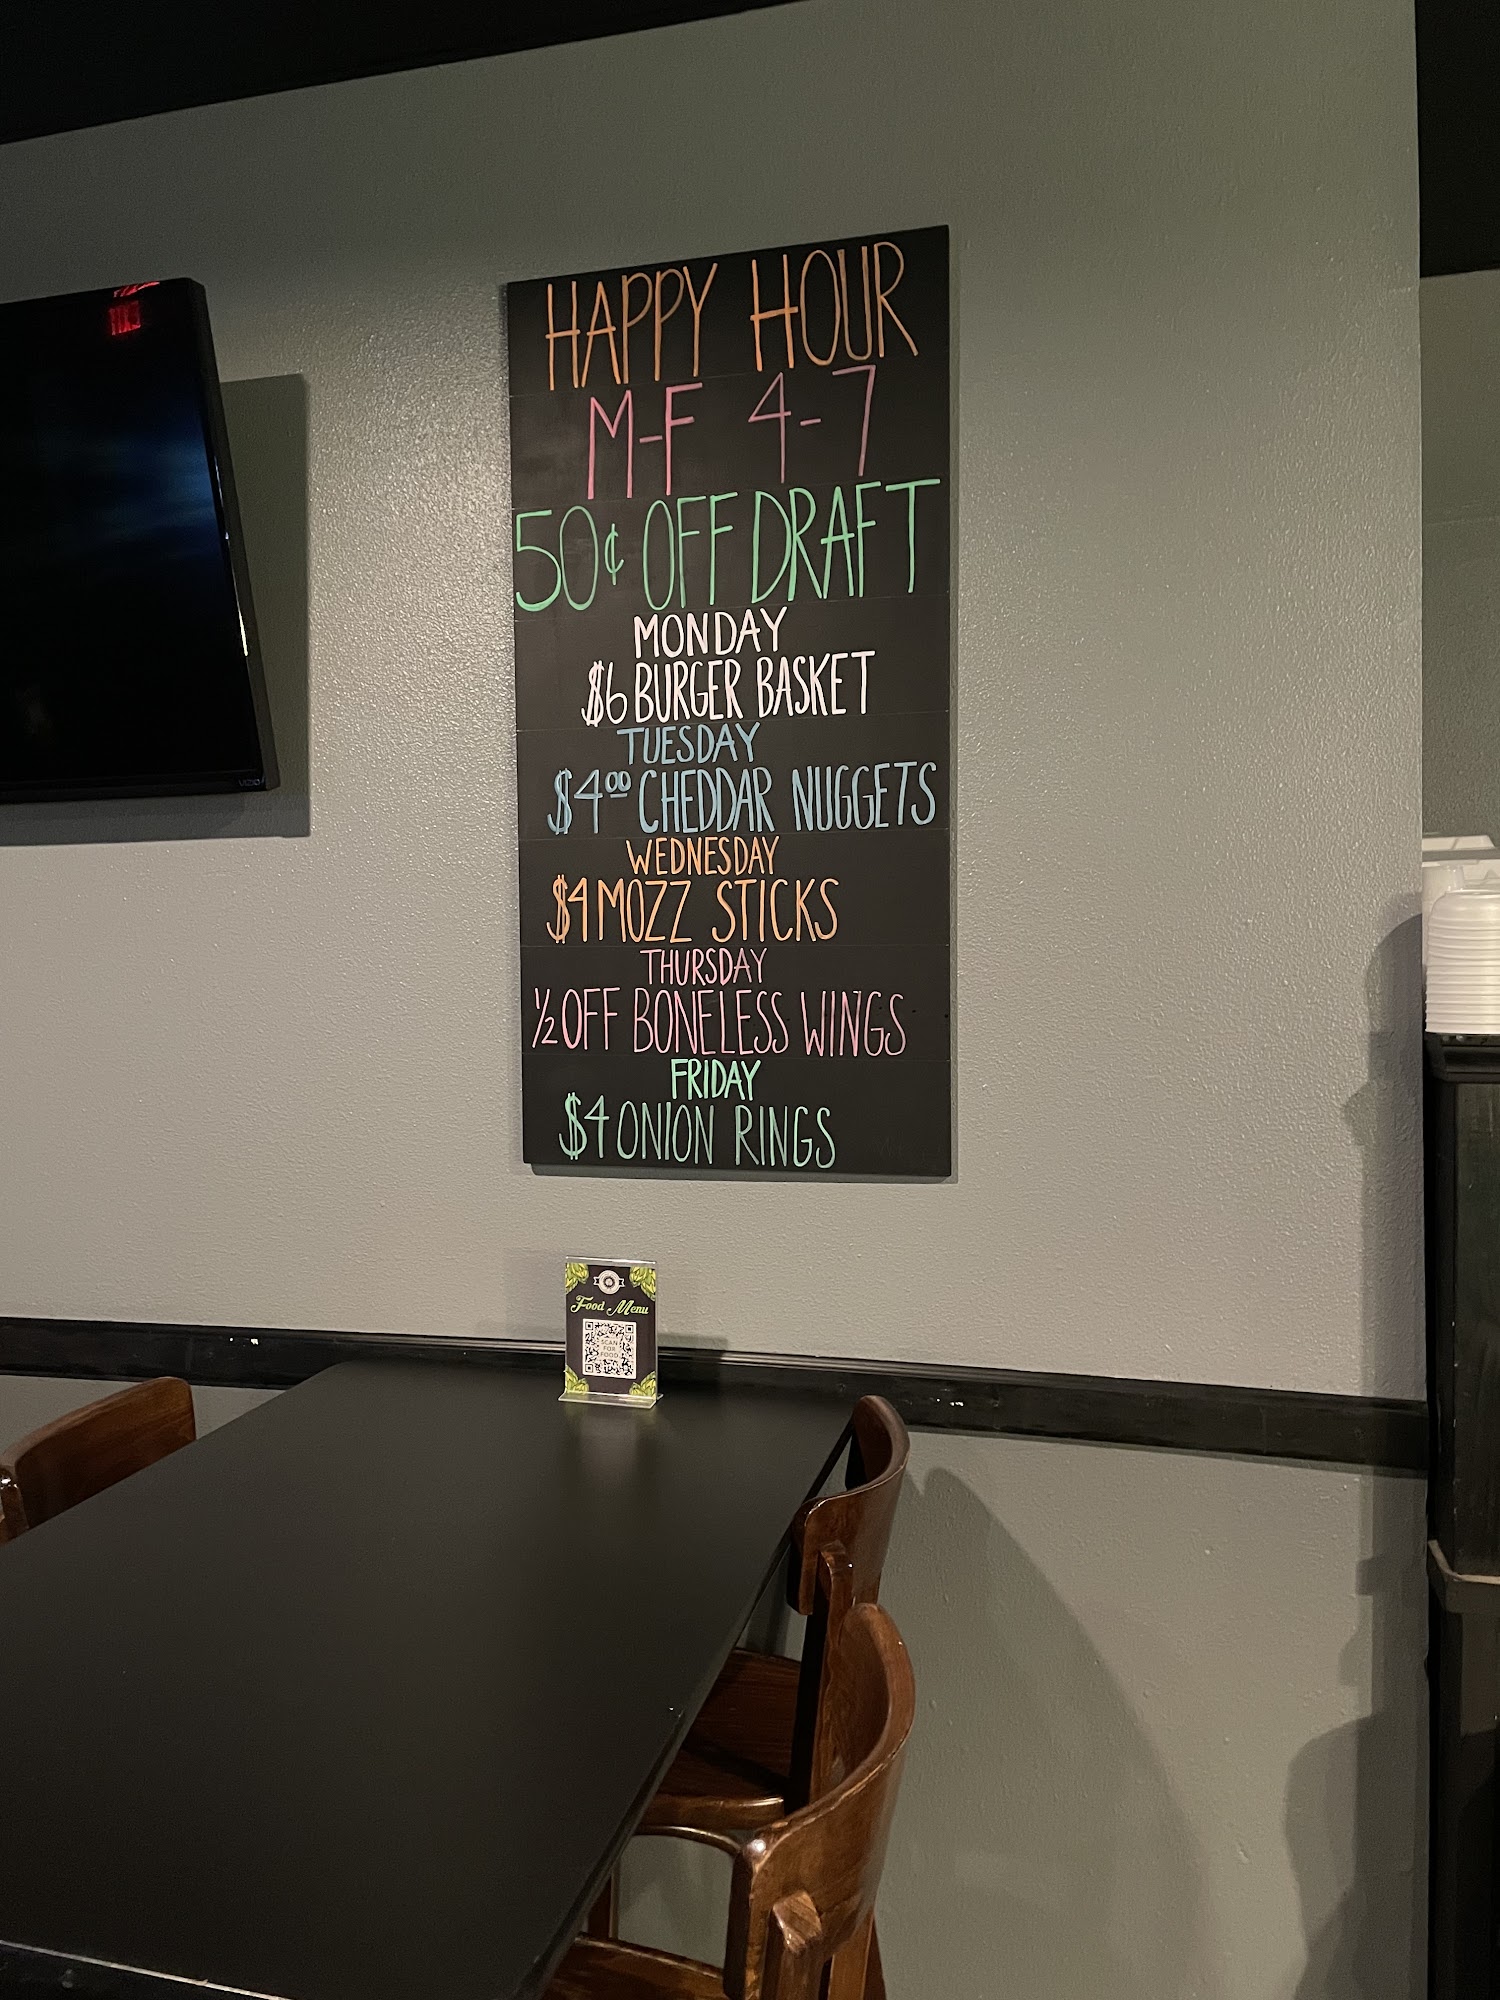 HAPPY HOUR
M-F 4-7
50¢ OFF DRAFT
MONDAY
$6 BURGER BASKET
TUESDAY
$4.00 CHEDDAR NUGGETS
WEDNESDAY
$4 MOZZ STICKS
THURSDAY
1/2 OFF BONELESS WINGS
FRIDAY
$4 ONION RINGS
Food Menu
SCAN
FOR
FOOD
VIZIO